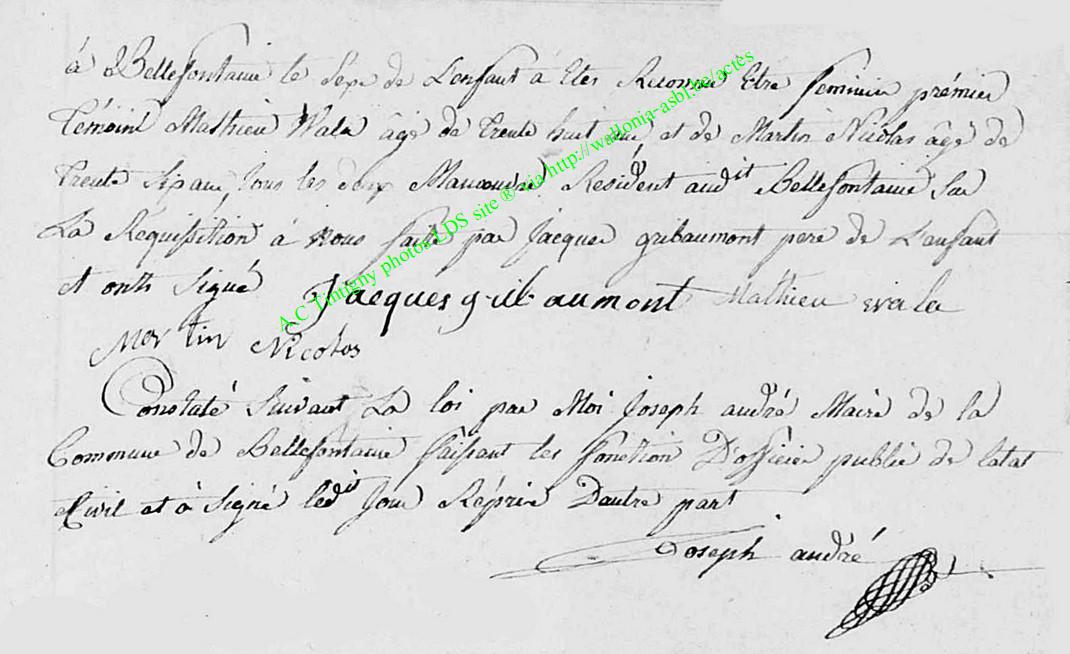 à Bellefontaine le Sexe de L'enfant à Etés Reconnu Etre feminin prémier
Témoins Mathieu Wala âgé de trente huit ans, et de Martin Nicolas âgé de
trente Six ans, tous les deux Manoeuvre Résident audit Bellefontaine Sur
La Réquisition à nous faite par Jacques gribaumont pere de L'enfant
et onts Signé Jacques gribaumont Mathieu wala
Martin Nicolas
Constaté Suivant La loi par Moi Joseph andré Maire de la
Commune de Bellefontaine faisant les fonction D'officier public de letat
Civil et à Signé ledit Jour Réprie D'autre part
Joseph andré
A.C Tintigny photos LDS site ® via http://wallonia-asbl.be/actes